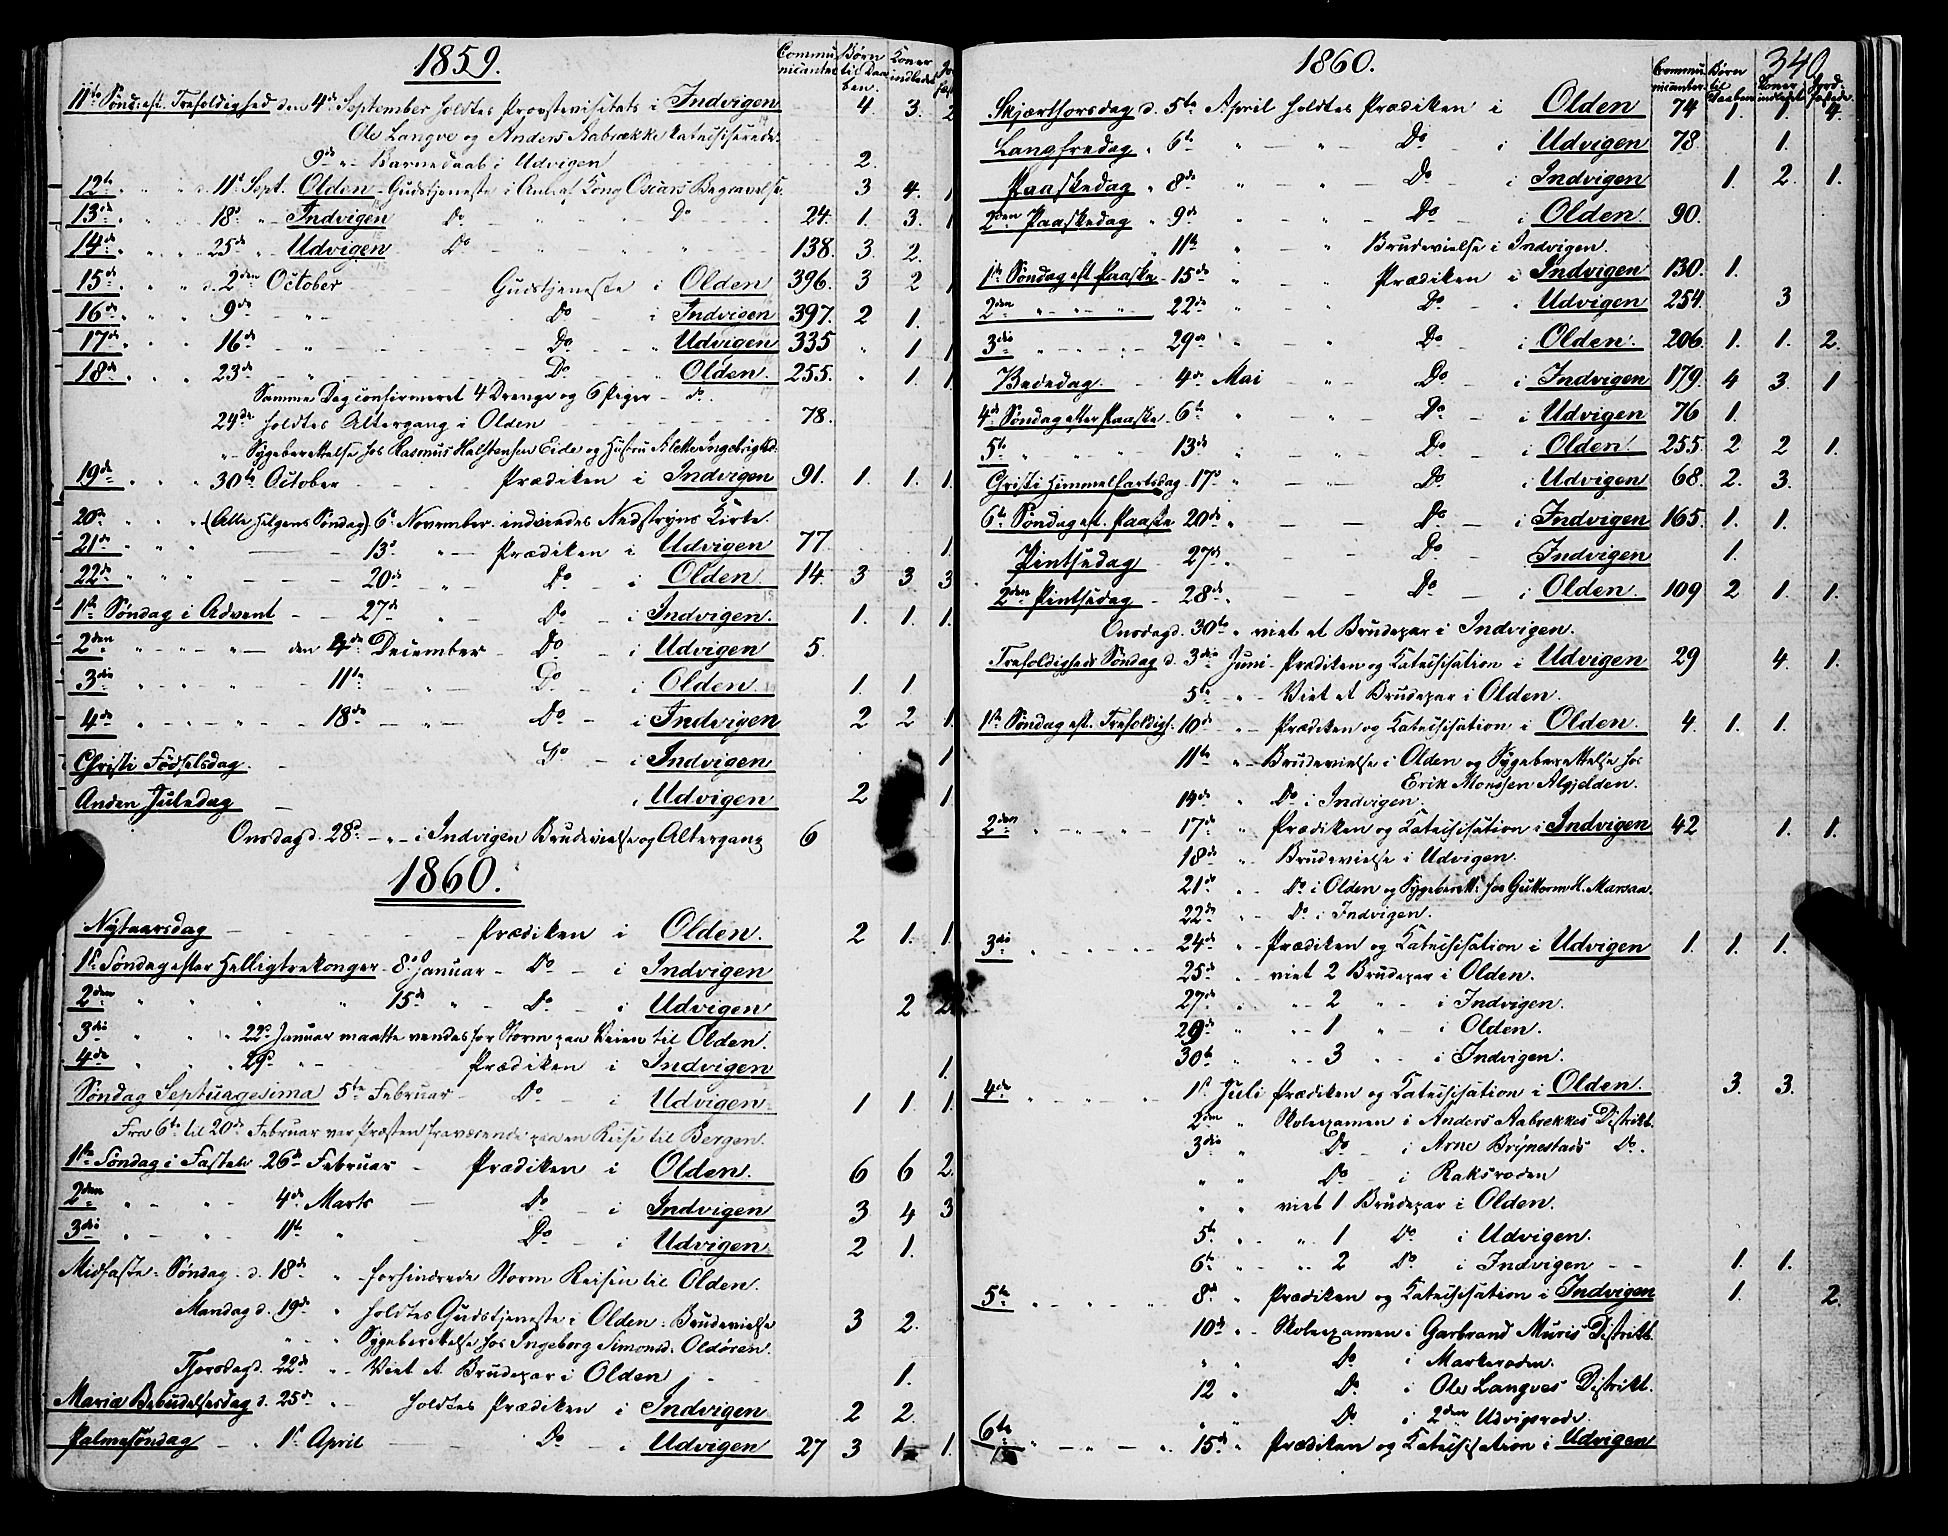 1859.
Commu nicanter Børn til Daa ben. Koner indledet
11te Sønd: eft. Trefoldighed den 4de September holdtes Provstevisitats i Indvigen 4 3. 2
Ole Langve og Anders Aabrække katechiserede.
9de " Barnedaab i Udvigen 2.
12te " " " d. 11te Sept. Olden - Gudstjeneste i Anl. af Kong Oscars Begravelse. 3 4. 1
13de " " 18de " Indvigen Do " " Do 24. 1. 3. 1
14de " " " 25de " Udvigen Do " " 138. 3. 2.
15de " " d. 2den October Gudstjeneste i Olden 396. 3 2 1
16de " " 9de " - Do - i Indvigen 397. 2 1.
17de " " 16de - " - Do - " Udvigen 335 " 1 1
18de " " " 23de - " - Do " Olden. 255. " 1 1
Samme Dag confirmeret 4 Drenge og 6 Piger - do.
24de holdtes Altergang i Olden 78.
" Sygeberettelse hos Rasmus Halstensen Eide og Hustru Alethe Ingebrigtsd.
19de " " " 30te October Prædiken i Indvigen 91. 1. 1. 1.
20de " " " (Alle Helgens Søndag) 6te November. indviedes Nedstryns Kirke.
21de " " " 13de " Prædiken i Udvigen 77 1.
22de " " " 20de " Do i Olden. 14. 3 3 3
1ste Søndag i Advent - - 27de " Do - i Indvigen. 1. 1. 1.
2den " - " - " - den 4de December - Do - i Udvigen 5.
3die " - " - " 11te " - Do - i Olden 1. 1.
4de " - " - " 18de - " - Do - i Indvigen 2 2 1.
Christi Fødselsdag. - Do - i Indvigen 1
Anden Juledag - i Udvigen 2 1.
Onsdag d. 28de - " - i Indvigen Brudevielse og Altergang 6
1860.
Nytaarsdag Prædiken i Olden. 2 1. 1.
1ste Søndag efter Helligtrekonger - 8de Januar - Do - i Indvigen
2den " " " " 15de " - Do - i Udvigen 2 2
3die " " " 22de Januar maatte vendes for Storm paa Veien til Olden.
4de " " " 29de " - Prædiken i Indvigen 1.
Søndag Septuagesima 5te Februar - Do - i Udvigen. 1 1. 1.
Fra 6te til 20de Februar var Præsten fraværende paa en Reise til Bergen.
1ste Søndag i Faste 26de Februar - Prædiken i Olden. 6 6 2.
2den " - " - 4de Marts - Do - i Indvigen 3 4 3
3die " - " - 11te " Do - i Udvigen 2 1.
Midfaste-Søndag - d. 18de " forhindrede Storm Reisen til Olden.
Mandag d. 19de " holdtes Gudstjeneste i Olden. Brudevielse 3 2.
" " Sygeberettelse hos Ingeborg Simonsd. Oldøren.
Thorsdag d. 22de " Viet et Brudepar i Olden 1.
Mariæ Bebudelsesdag d. 25de " holdtes Prædiken i Indvigen 2 2.
Palmesøndag - " 1ste April Do - i Udvigen 27 3 1. 1.
1860.
340
Commu nicanter. Børn til Daaben Koner indledet Jord fæstede.
Skjærthorsdag d. 5te April holdtes Prædiken i Olden 74 1. 1. 4.
Langfredag " 6te " - " Do i Udvigen 78. 1.
Paaskedag " 8de " - " Do - i Indvigen 1. 2. 1.
2den Paaskedag " 9de " - " Do - i Olden. 90.
" 11te " " Brudevielse i Indvigen.
1ste Søndag eft Paaske 15de " - " Prædiken i Indvigen 130. 1.
2den " - " - " 22de " - " Do - i Udvigen 254. 3
3die " - " - " - 29de " - " Do - i Olden. 206. 1. 1. 2.
Bededag. - 4de Mai - " Do - i Indvigen 179. 4 3. 1
4de Søndag efter Paaske 6te " - " Do - i Udvigen 76 1.
5te " " " 13de " - " Do - i Olden. 255. 2 2 1.
Christi Himmelfartsdag. 17de " - " Do - i Udvigen 68. 2. 3.
6te Søndag eft. Paaske 20de " - Do - i Indvigen 165. 1. 1.
Pintsedag - 27de " - Do Indvigen 1.
2den Pintsedag - 28de " - Do - i Olden. 109 2 1. 1.
Onsdag d. 30te " viet et Brudepar i Indvigen.
Trefoldigheds Søndag d. 3die Juni - Prædiken og Katechisation i Udvigen 29 4. 1.
5te " - Viet et Brudepar i Olden.
1ste Søndag eft. Trefoldigh. 10de " - Prædiken og Katechisation i Olden. 4. 1. 1.
11te " - Brudevielse i Olden og Sygeberettelse hos
Erik Monssen Algjelden.
14de " Do i Indvigen.
2den " " " " 17de " Prædiken og Katechisation i Indvigen 42 1. 1.
18de " - Brudevielse i Udvigen.
21de " - Do i Olden og Sygeberett: hos Guttorm H. Marsaa.
22de " - Do i Indvigen.
3die " " " " 24de " - Prædiken og Katechisation i Udvigen 1. 1. 1.
25de " - viet 2 Brudepar i Olden.
27de " " 2 " - i Indvigen.
29de " " 1 " - i Olden.
30te " " 3 " - i Indvigen.
4de " " " " 1ste Juli Prædiken og Katechisation i Olden. 3. 3.
2den " Skoleexamen i Anders Aabrekkes Distrikt.
3die " Do - i Arne Brynestads Do.
" " Do - i Raksroden
" " viet 1 Brudepar i Olden.
5te " " 1 Do i Udvigen.
6te " " 2 Do i Indvigen - - 1. 1.
5te " " " " 8de " Prædiken og Katechisation i Indvigen 1. 2.
10de " Skoleexamen i Garbrand Muris Distrikt.
" " Do i Markeroden.
12 " Do i Ole Langves Distrikt.
" " Do i 2den Udvigsrode.
6te " - " - " 15de " Prædiken og Katechisation i Udvigen